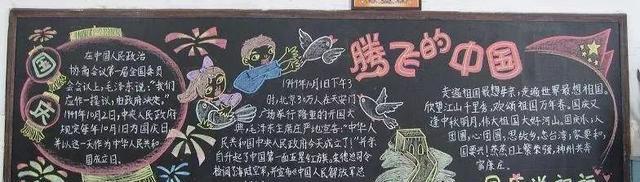 国庆
在中国人民政治
协商会议第一届全国委员
会会议上，毛泽东说："我们
应作一提议，由政府决定。"
1949年10月2日，中央人民政府
规定每年10月1日为国庆日
并以这一天作为中华人民共和
国成立日。
1949年10月1日下午3
时，北京30万人在天安门
广场举行隆重的开国大
典，毛泽东主席庄严地宣告："中华人
民共和国中央人民政府今天成立了！"并亲
自升起了中国第一面五星红旗。朱德总司令
检阅了海陆空军，并宣布中国人民解放军总
腾飞的中国
走遍祖国最想
走遍世界最想祖国。
欣望江山千里秀，欢颂祖国万年春。国庆又
逢中秋明月，伟大祖国大好河山。国庆
团圆，心团圆，思故乡，念台湾；家要和，
国要兴！蒸蒸日上繁荣强，神州共奔
富康庄。